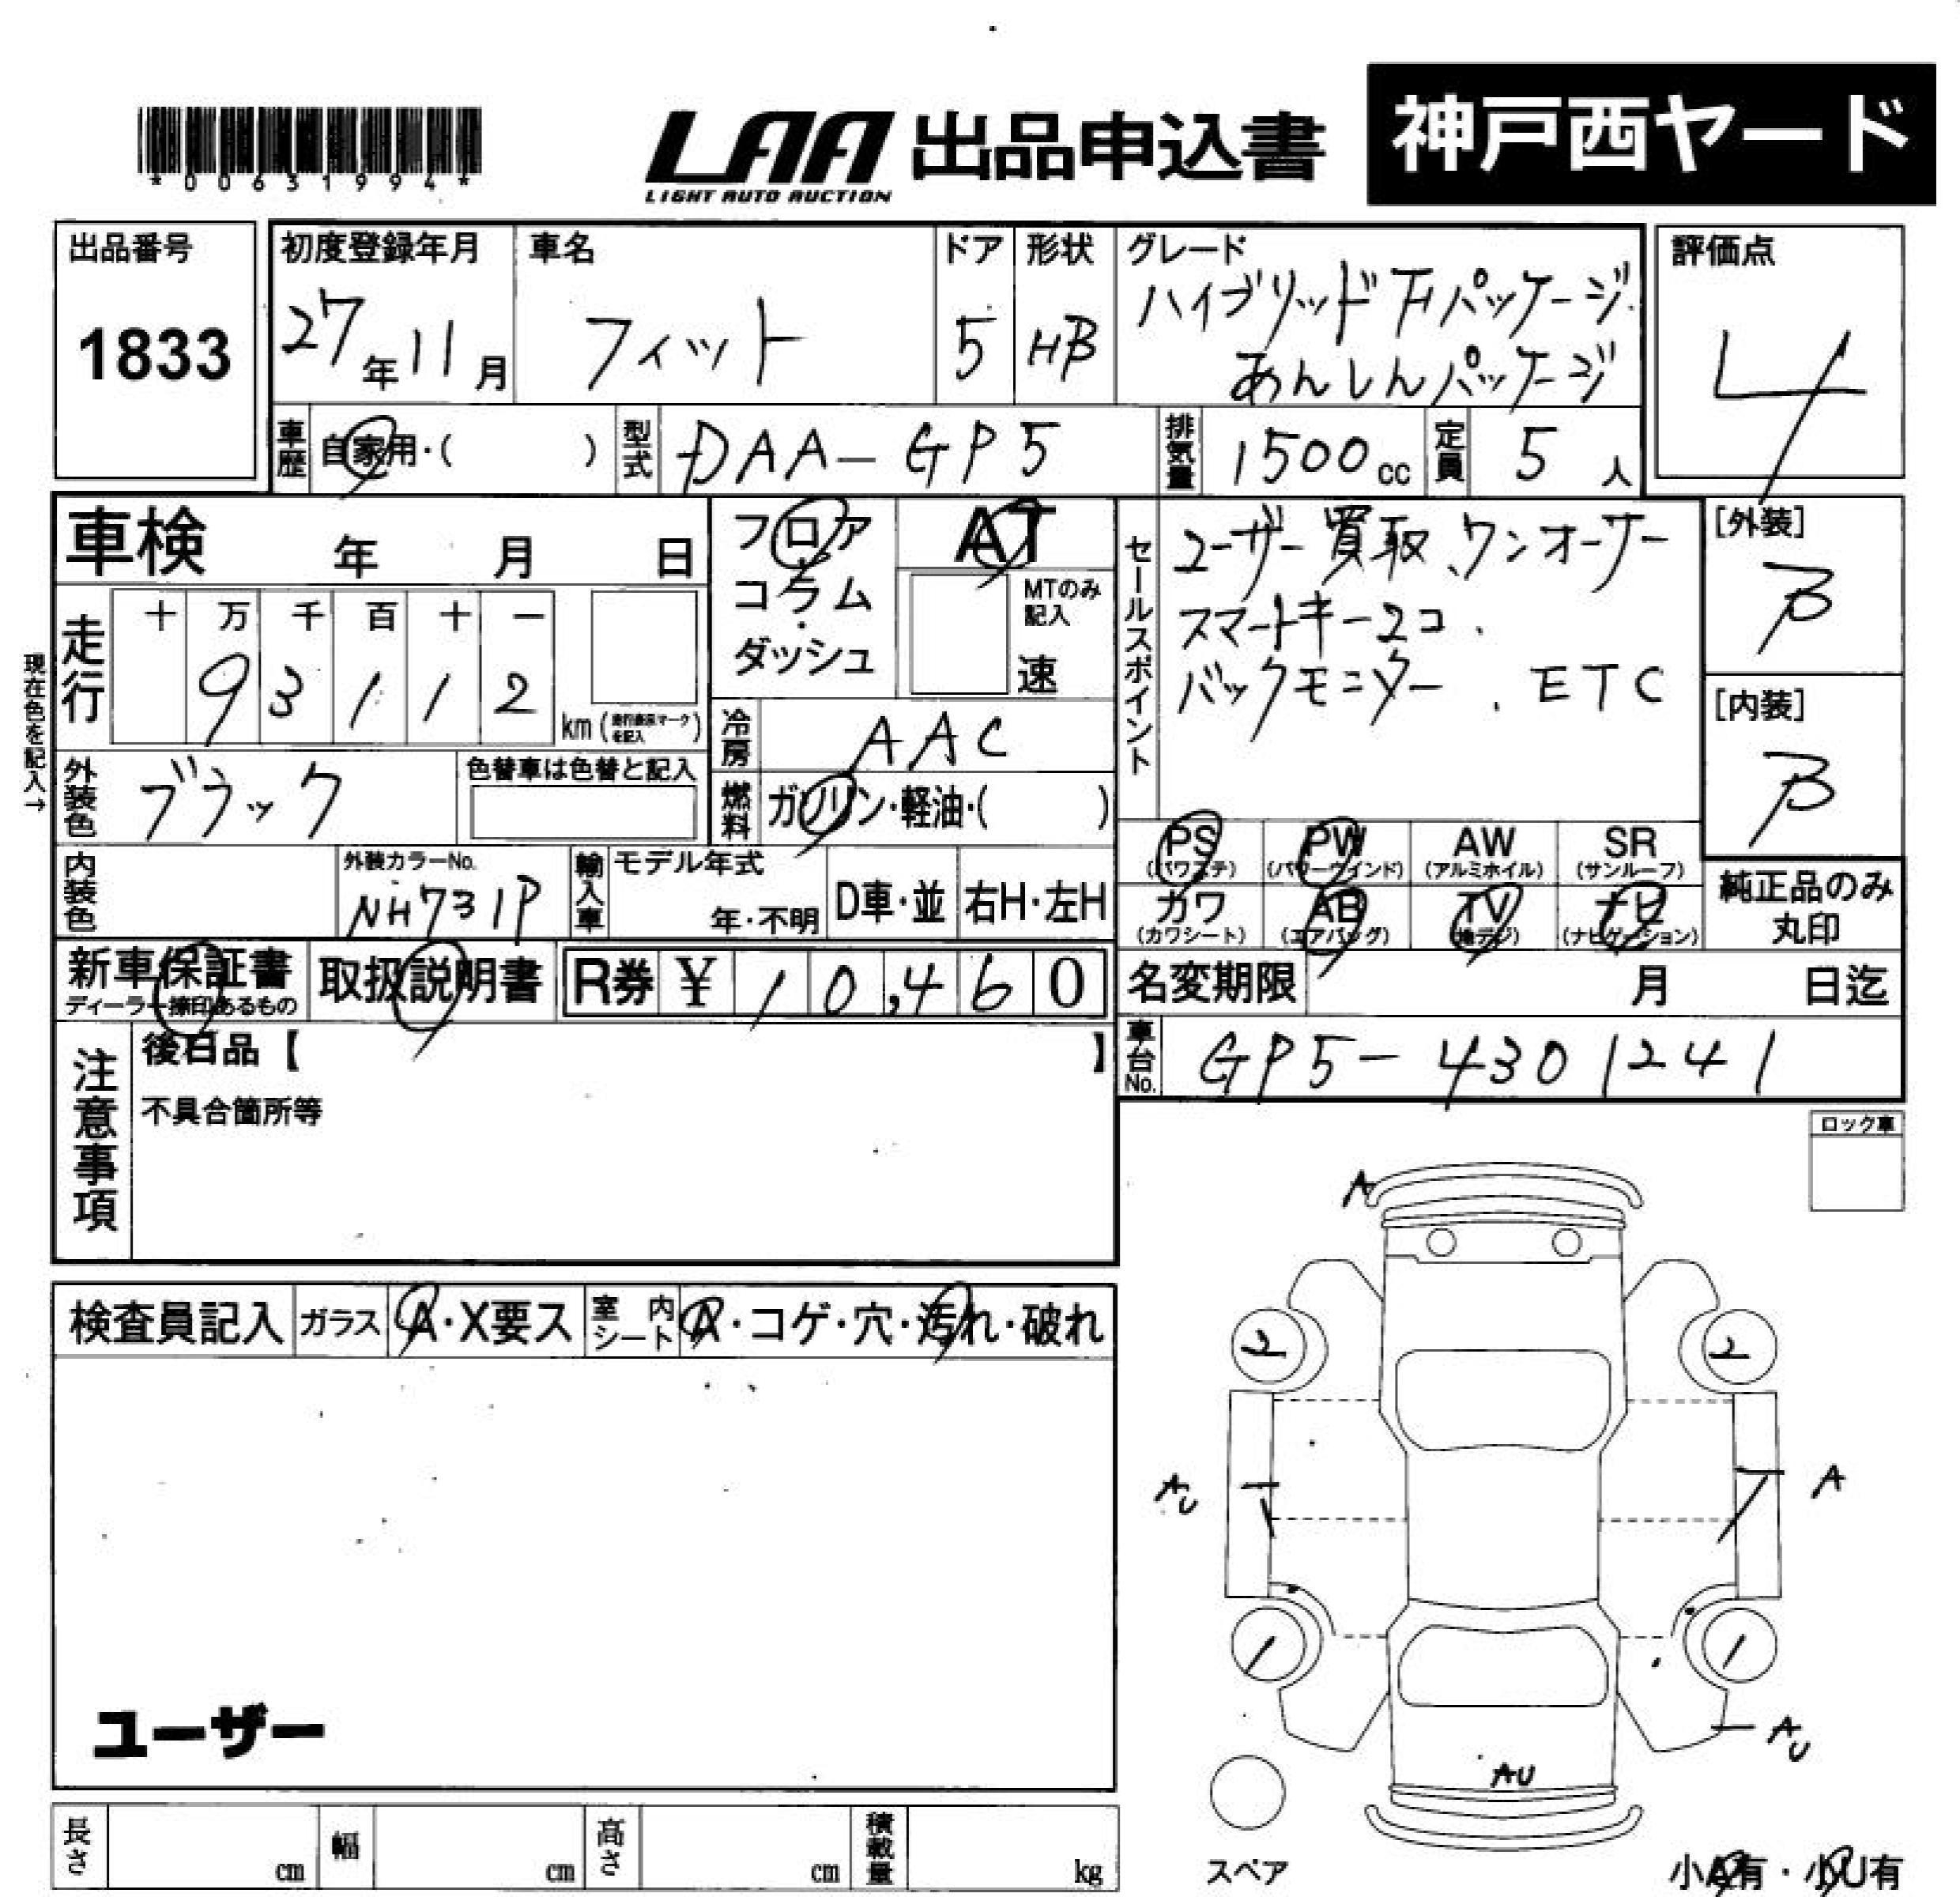 神戸西ヤード
LAA 出品申込書
LIGHT AUTO AUCTION
*00631994*
出品番号
1833
初度登録年月
27年11月
車名
フィット
ドア
5
形状
HB
グレード
ハイブリッド Fパッケージ
あんしんパッケージ
評価点
4
車歴
自家用・( )
型式
DAA-GP5
排気量
1500cc
定員
5人
車検 年 月 日
フロア
・
コラム
・
ダッシュ
AT
MTのみ
記入
速
セールスポイント
ユーザー買取、ワンオーナー
スマートキー2コ、
バックモニター、ETC
[外装]
B
[内装]
B
現在色を記入→
走行
十 万 千 百 十 一
9 3 1 1 2
km (
マーク
を記入
)
冷房
AAC
外装色
ブラック
色替車は色替と記入
燃料
ガソリン・軽油・( )
PS
(パワステ)
PW
(パワーウインド)
AW
(アルミホイル)
SR
(サンルーフ)
カワ
(カワシート)
AB
(エアバッグ)
TV
(地デジ)
ナビ
(ナビゲーション)
純正品のみ
丸印
内装色
外装カラーNo.
NH731P
輸入車
モデル年式
年・不明
D車・並
右H・左H
新車保証書
ディーラー捺印あるもの
取扱説明書
R券 ¥ 10,460
名変期限 月 日迄
車台No.
GP5-4301241
注意事項
後日品【 】
不具合箇所等
ロック車
検査員記入
ガラス
A・X要ス
室内
シート
A・コゲ・穴・汚れ・破れ
ユーザー
A
2
2
AU
A
1
1
AU
AU
スペア
小A有・小U有
長さ
cm
幅
cm
高さ
cm
積載量
kg